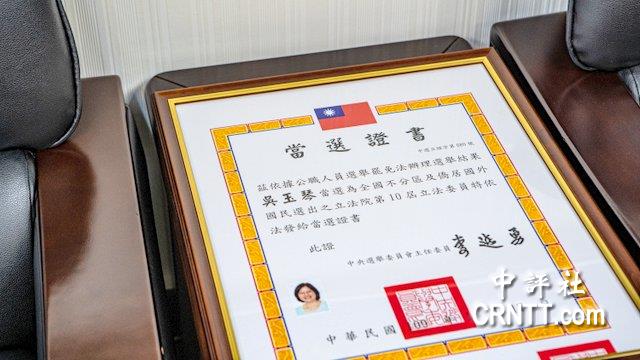 當選證書
茲依據公職人員選舉罷免法辦理選舉結果
吳玉琴當選為全國不分區及僑居國外
國民選出之立法院第10屆立法委員特依
法發給當選證書
此證
中央選舉委員會主任委員 李進勇
中華民國 109
中評社
CRNTT.com